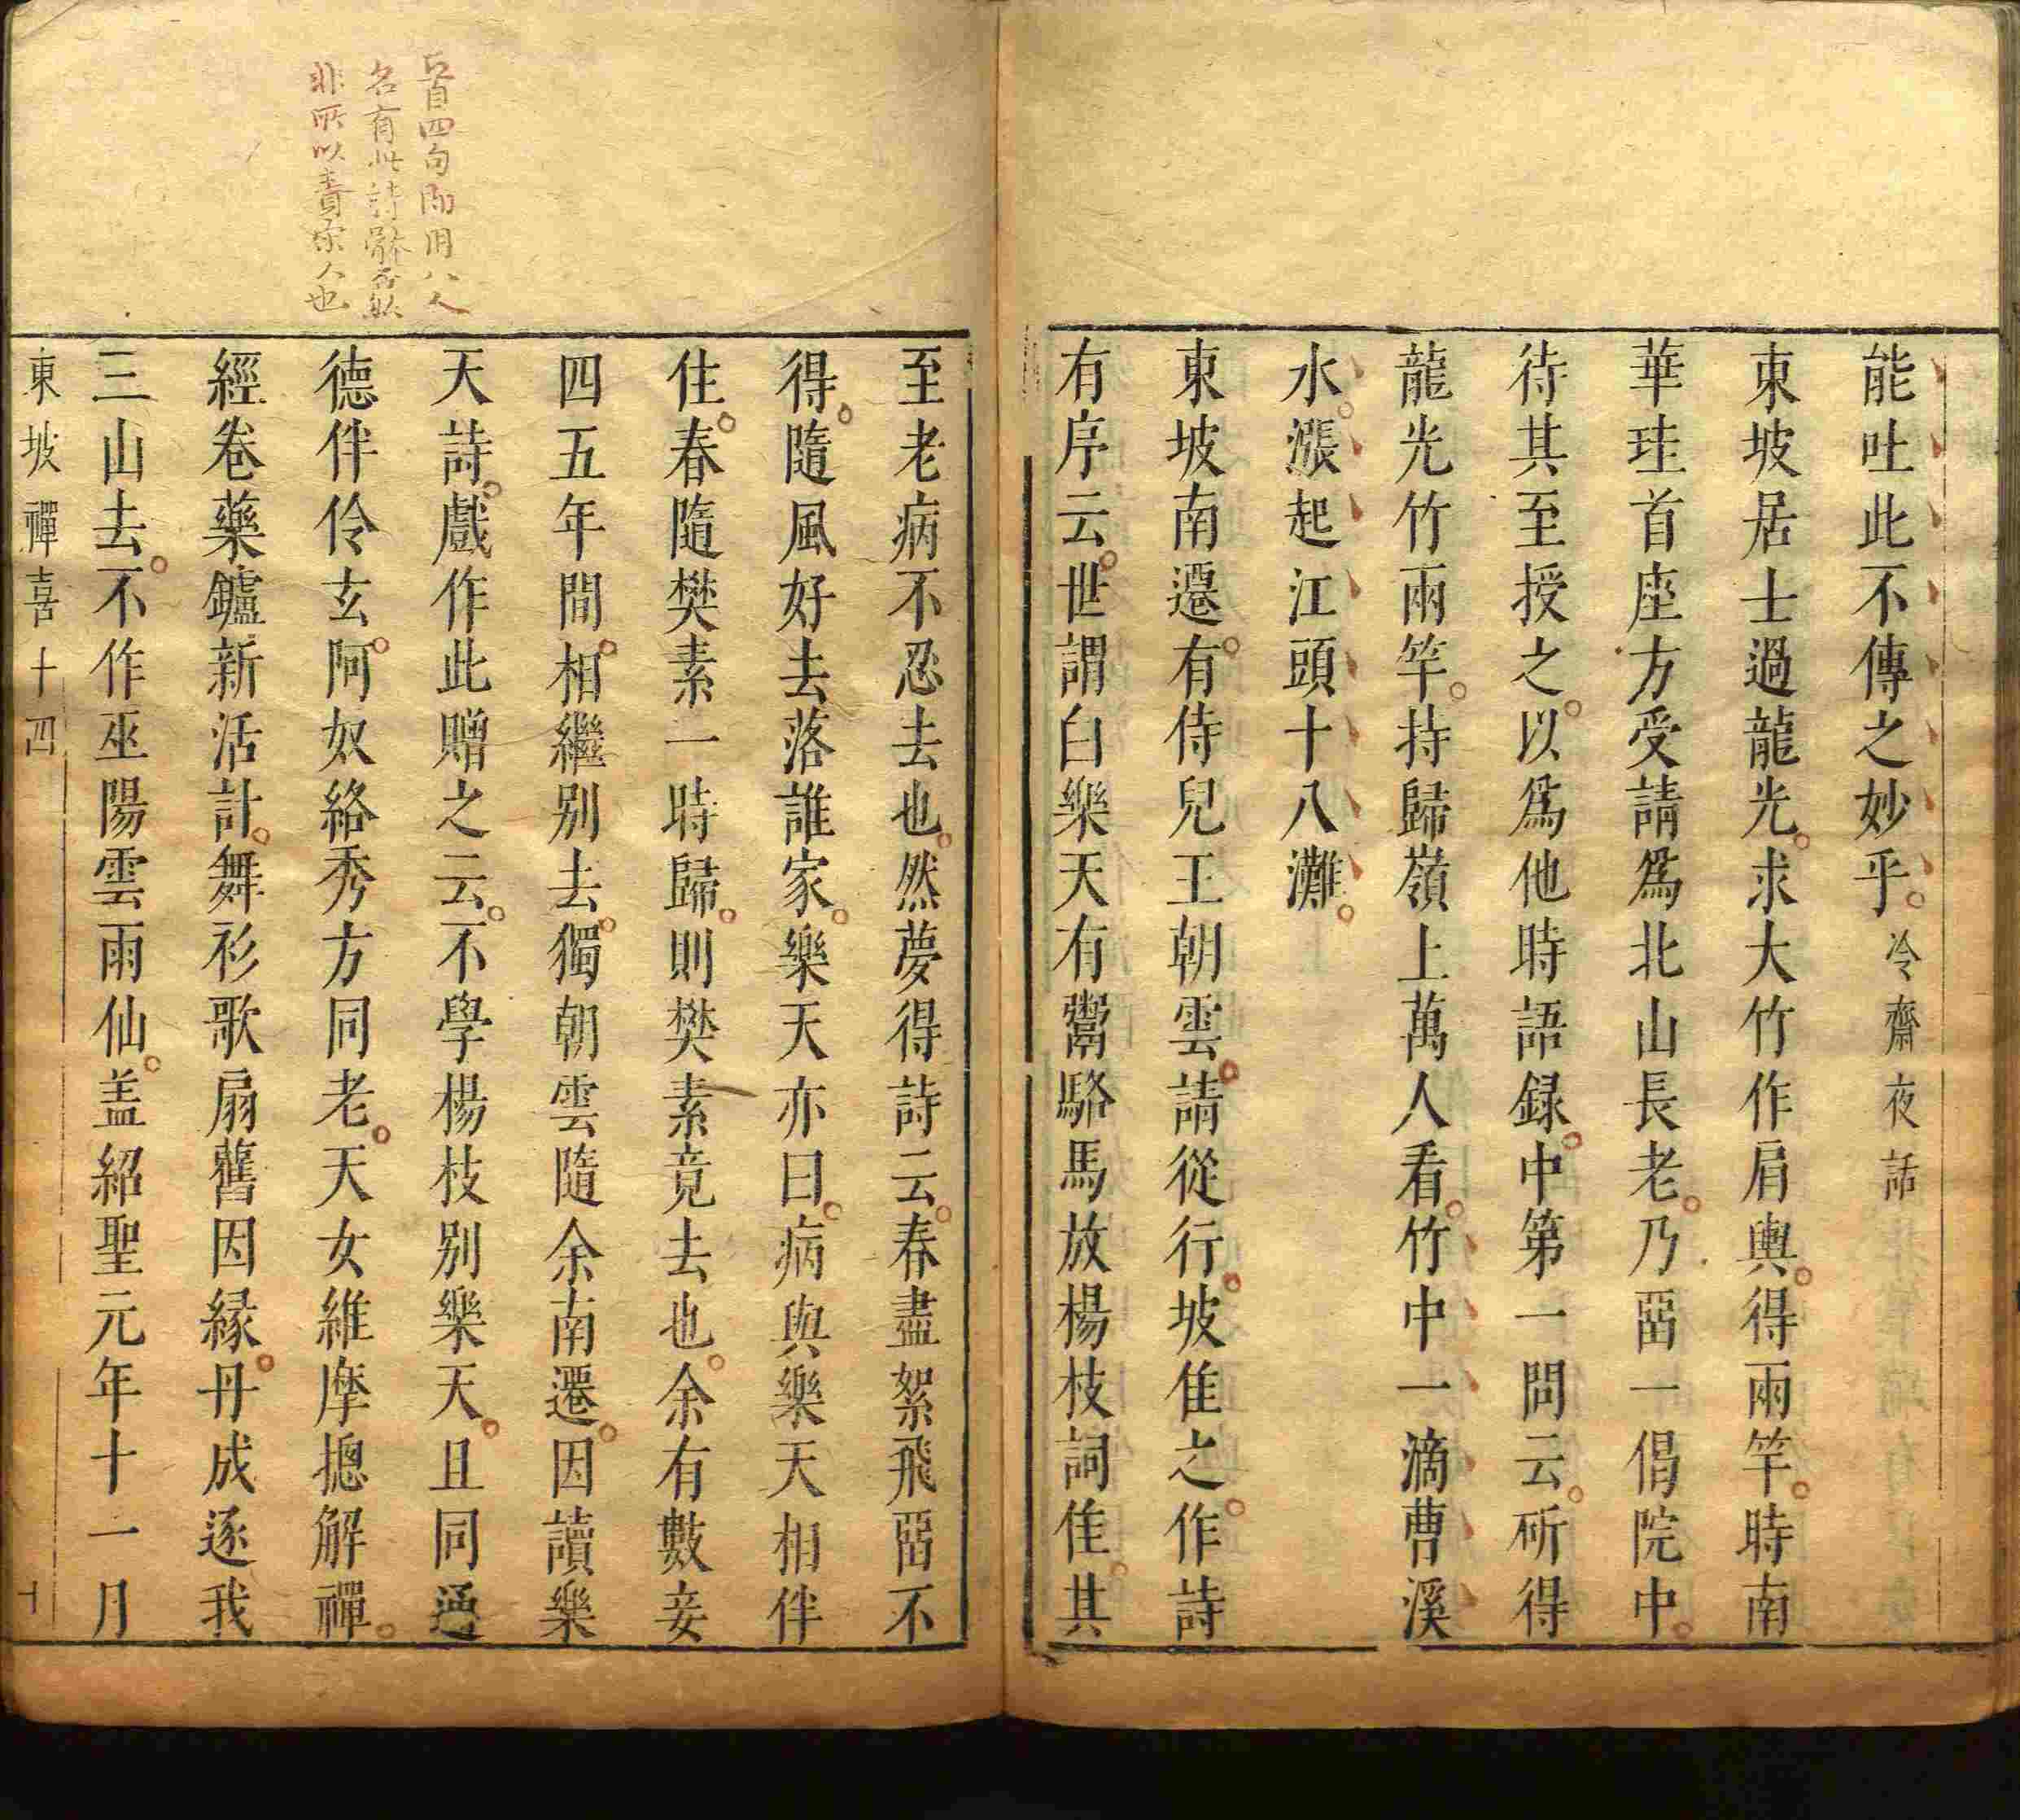 能吐此不傳之妙乎冷齋夜話
東坡居士過龍光求大竹作肩輿得兩竿時南
華珪首座方受請爲北山長老乃畱一偈院中
待其至授之以爲他時語録中第一問云斫得
龍光竹兩竿持歸嶺上萬人看竹中一滴曹溪
水漲起江頭十八灘
東坡南遷有侍兒王朝雲請從行坡佳之作詩
有序云世謂白樂天有鬻駱馬放楊枝詞佳其
首四句即用八人
名有此詩體
非所以責宋人也
至老病不忍去也然夢得詩云春盡絮飛畱不
得隨風好去落誰家樂天亦曰病與樂天相伴
住春隨樊素一時歸則樊素竟去也余有數妾
四五年間相繼别去獨朝雲隨余南遷因讀樂
天詩戲作此贈之云不學楊枝别樂天且同通
德伴伶玄阿奴絡秀方同老天女維摩摠解禪
經卷藥鑪新活計舞衫歌扇舊因緣丹成逐我
三山去不作巫陽雲雨仙盖紹聖元年十一月
東坡禪喜十四